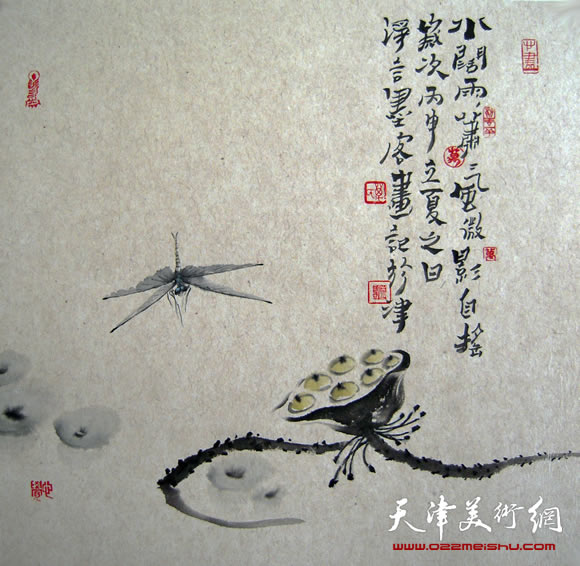 水阔雨萧〻風微影自摇
歲次丙申立夏之日
淨言墨客畫記於津
天津美術網
www.022meishu.com